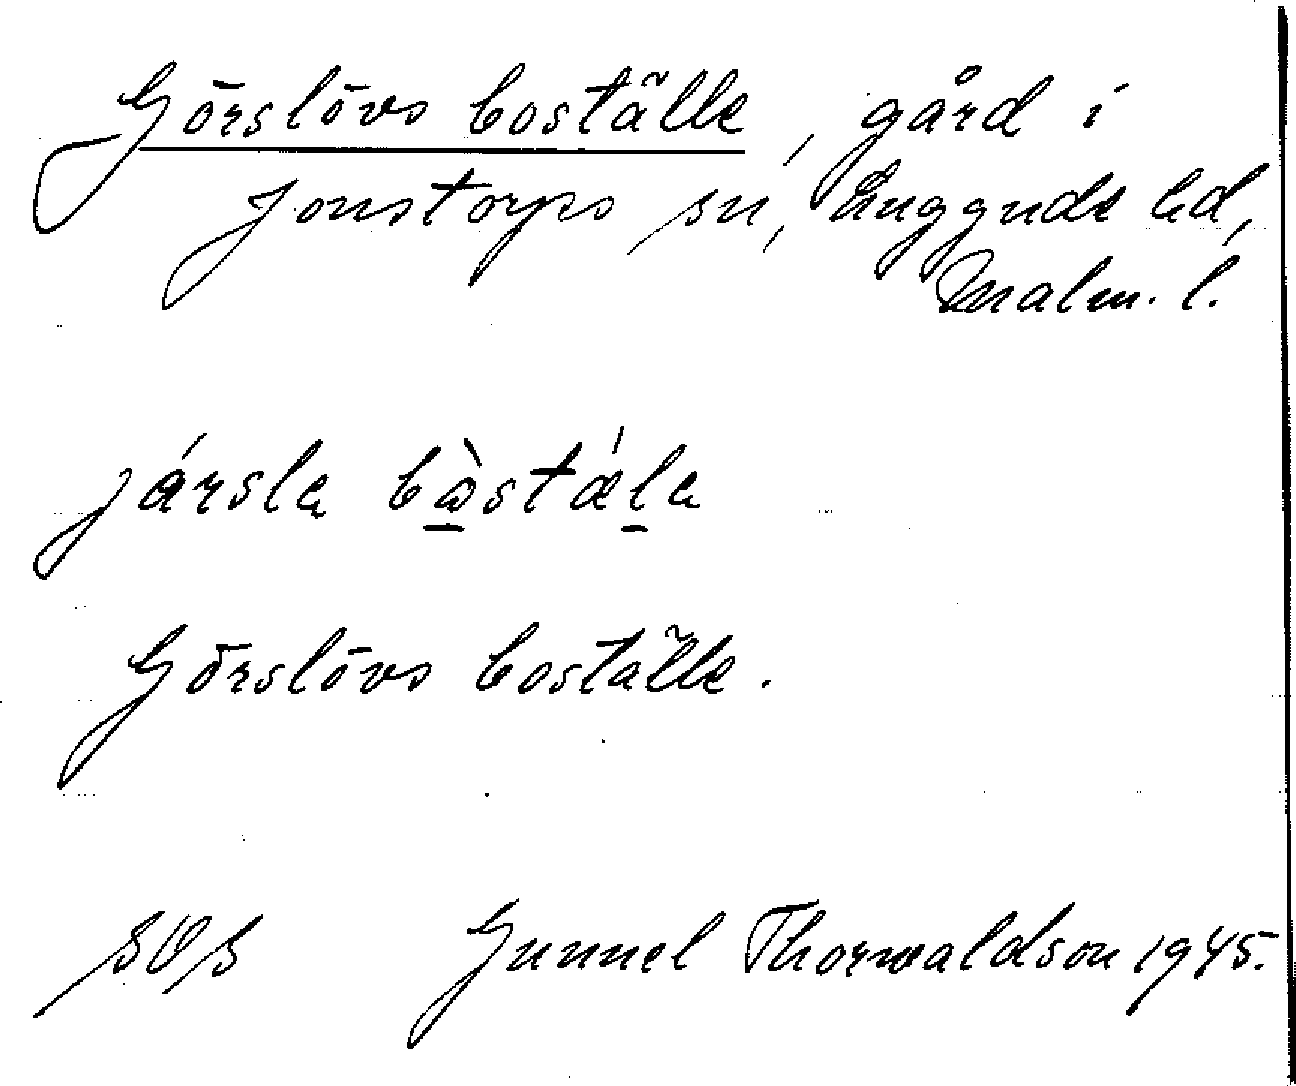 Görslövs boställe, gård i
Jonstorps sn, Luggude hd,
Malm. l.
jársla bàstǽla
Görslövs boställe.
SOS Gunnel Thorwaldson 1945.